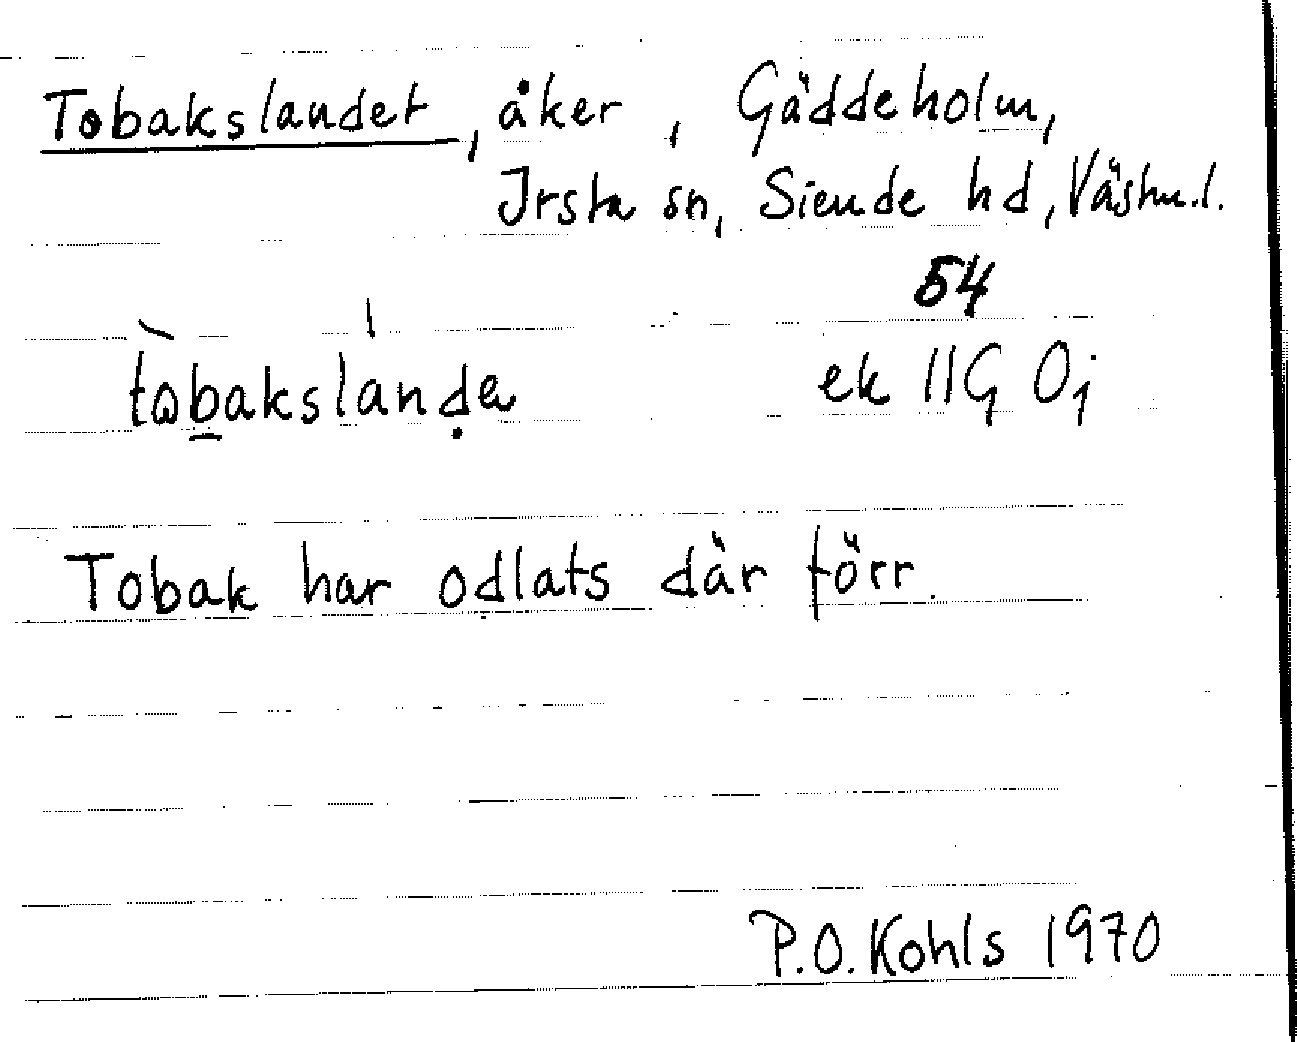 Tobakslandet, åker, Gäddeholm,
Irsta sn, Siende hd, Västm.l.
54
tòbakslánḍa ek 11G 0j
Tobak har odlats där förr.
P.O. Kohls 1970